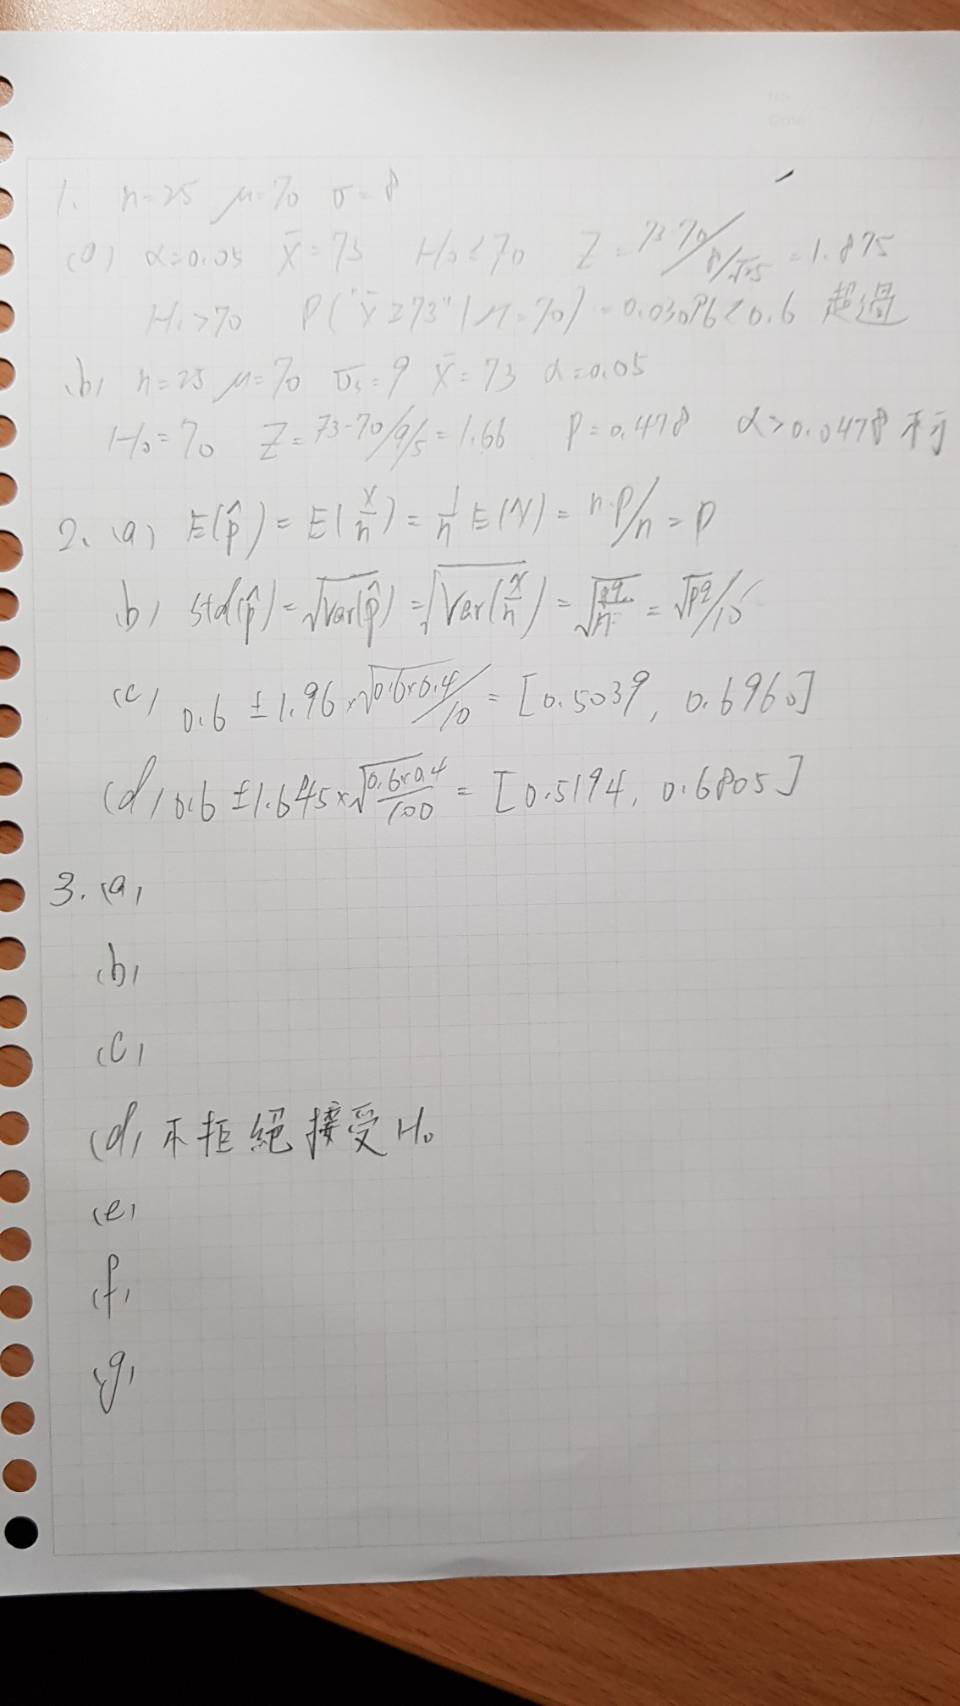 1. n=25 μ=70 σ=8
(a) α=0.05 x̄=73 H₀<70 Z=73-70/8/√25=1.875
H₁>70 P("x̄≥73"|μ=70)=0.03 超過
(b) n=25 μ=70 σ=9 x̄=73 α=0.05
H₀=70 Z=73-70/9/5=1.66 P=0.478 α>0.0478
2. (a) E(p̂)=E(x/n)=1/n E(X)=n·p/n=p
(b) std(p̂)=√Var(p̂)=√Var(x/n)=√pq/n=√pq/10
(c) 0.6±1.96×√0.6×0.4/10=[0.5039, 0.6960]
(d) 0.6±1.645×√0.6×0.4/100=[0.5194, 0.6805]
3. (a)
(b)
(c)
(d) 不拒絕接受H₀
(e)
(f)
(g)